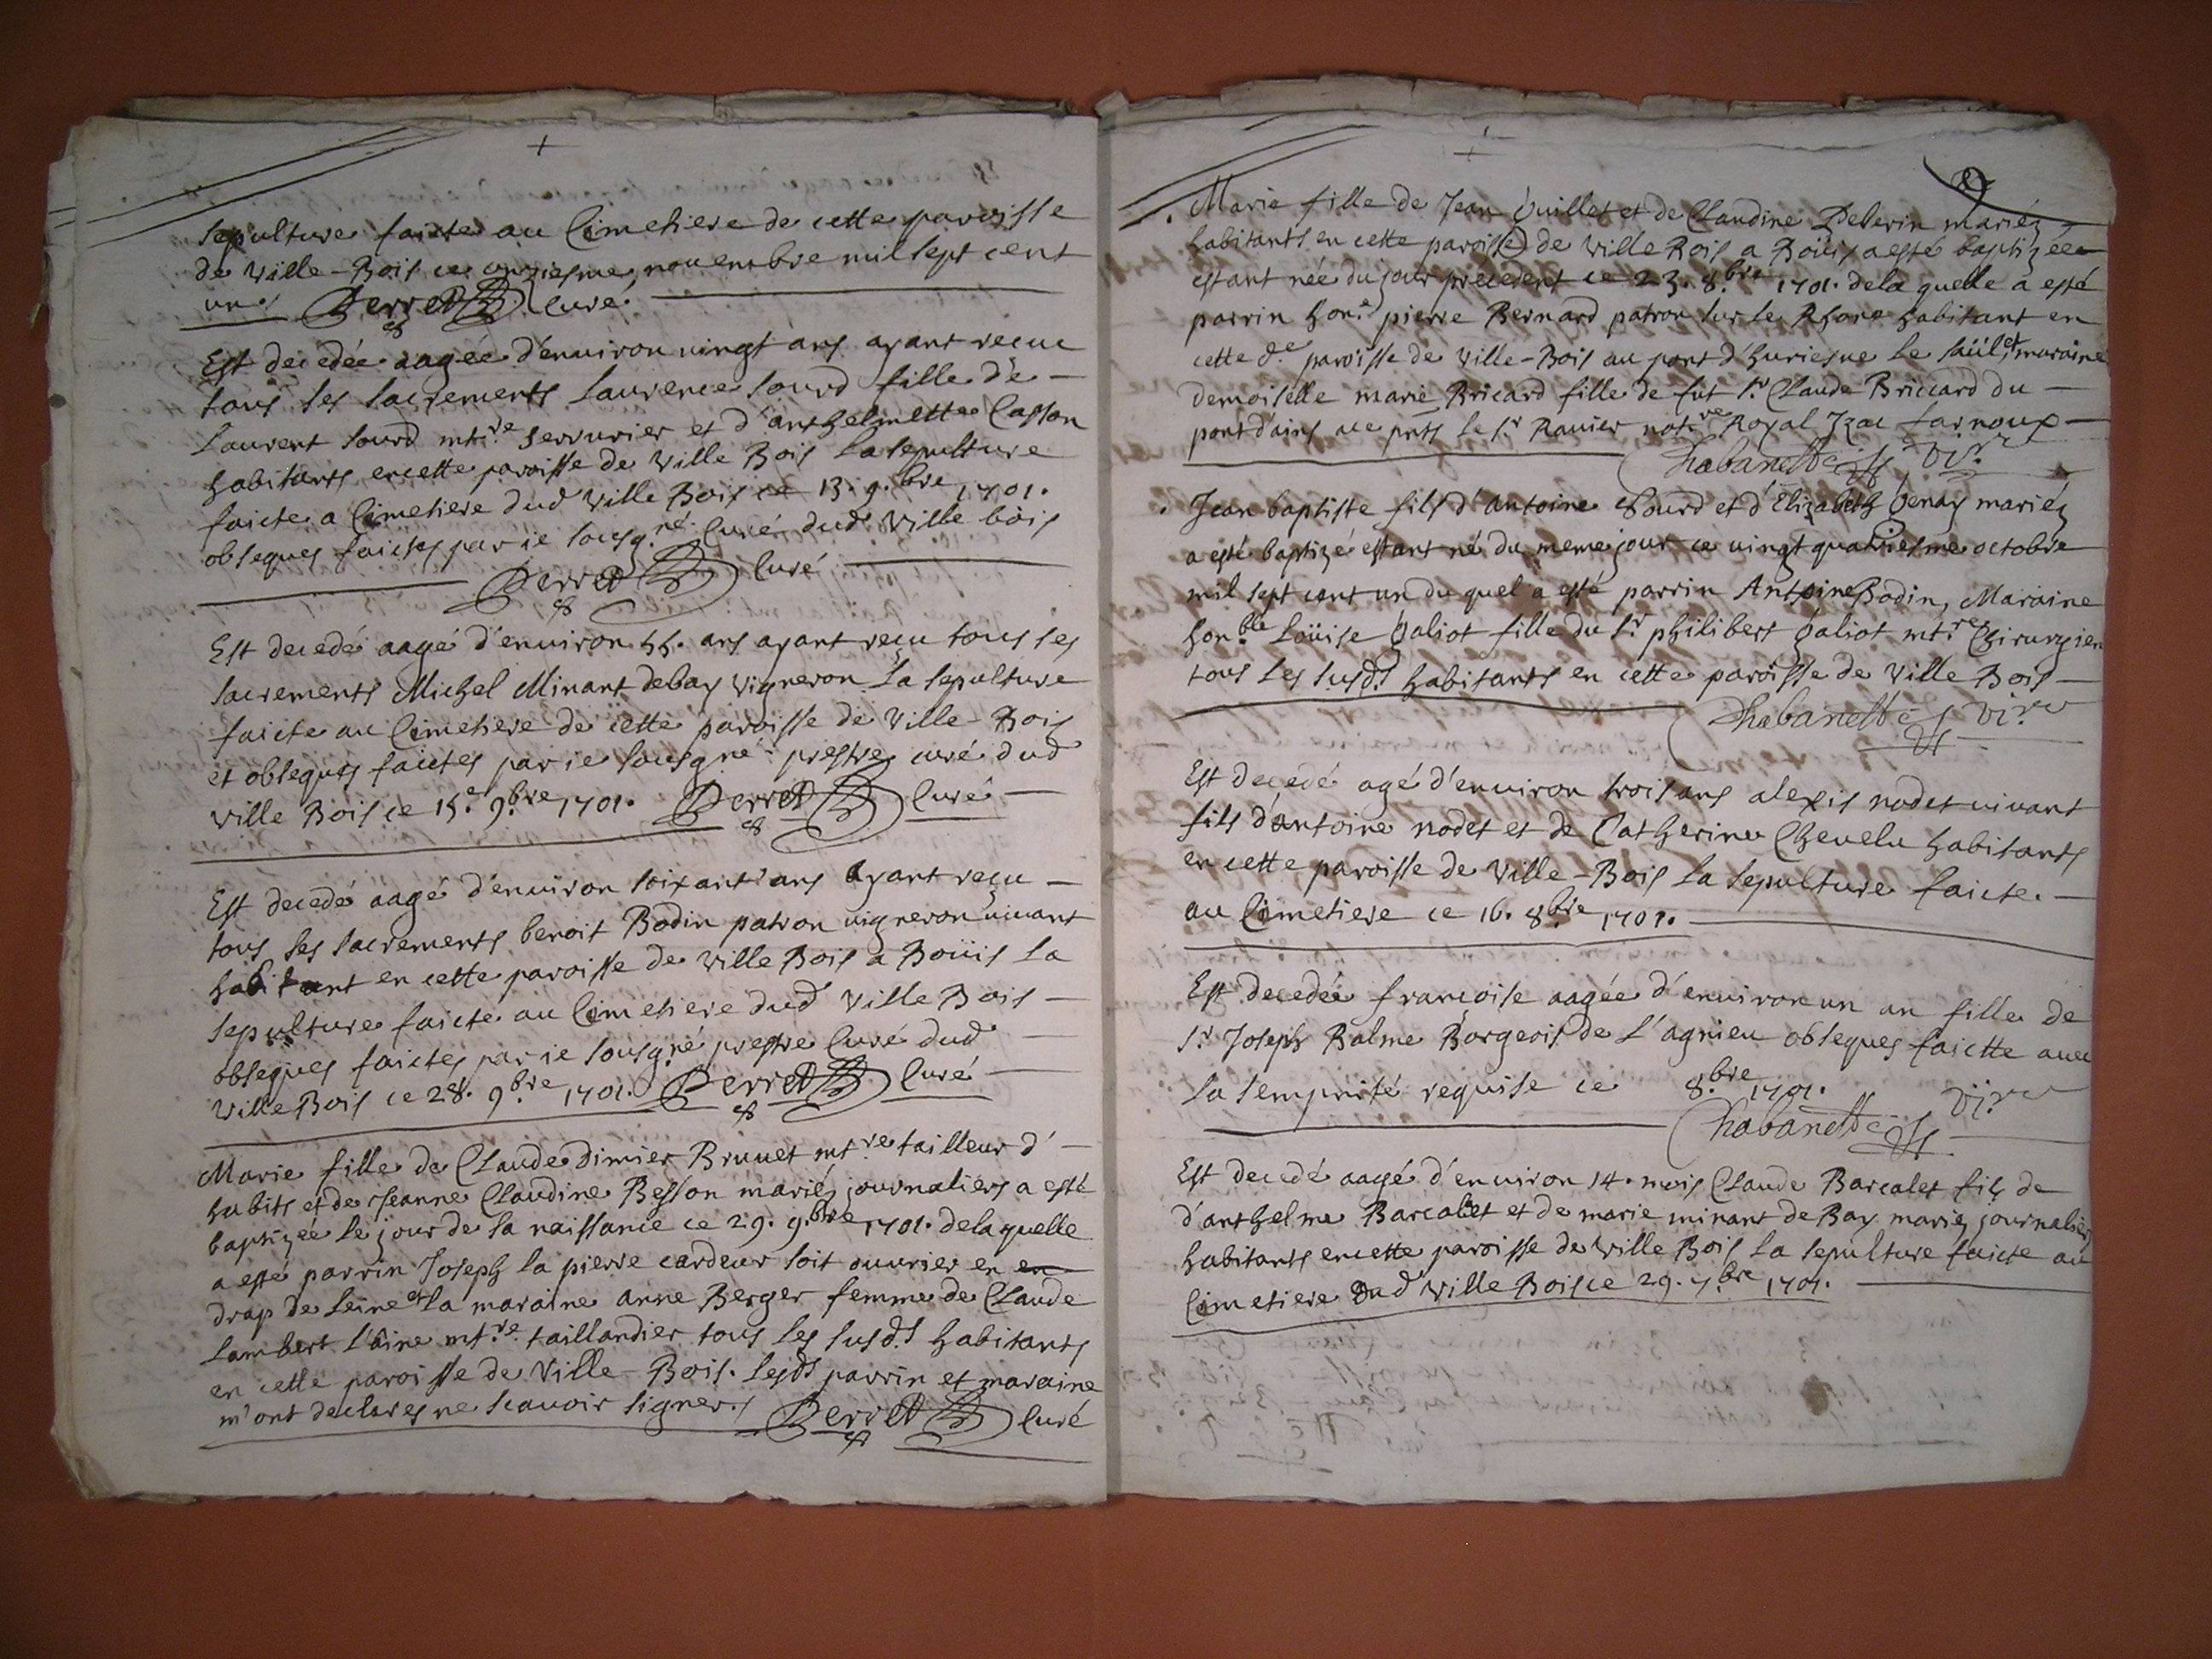 sepulture faicte au Cimetiere de cette paroisse
de Ville-Bois ce onziesme novembre mil sept cent
un. Perret Curé
Est decedée aagée d'environ vingt ans ayant reçue
tous les sacrements Laurence Sourd fille de
Laurent Sourd mtre serrurier et d'anthelmette Casson
habitants en cette paroisse de Ville Bois la sepulture
faicte a Cimetiere dud Ville Bois ce 13. 9.bre 1701.
obseques faictes par ie sousg.né Curé dud Ville bois
Perret Curé
Est decedé aagé d'environ 55. ans ayant reçu tous ses
sacrements Michel Minant debay vigneron La sepulture
faicte au Cimetiere de cette paroisse de Ville-Bois
et obseques faictes par ie sousgné prestre curé dud
ville Bois ce 15.e 9.bre 1701. Perret Curé
Est decedé aagé d'environ soixant'ans ayant reçu
tous ses sacrements benoit Bodin patron vigneron vivant
habitant en cette paroisse de Ville Bois a Boüis la
sepulture faicte au Cimetiere dud Ville Bois
obseques faictes par ie sousgné prestre Curé dud
Ville Bois ce 28. 9.bre 1701. Perret Curé
Marie fille de Claude dimier Bruuet mtre tailleur d'
habits et de Jeanne Claudine Besson mariés journaliers a esté
baptizée le jour de sa naissance ce 29. 9.bre 1701. de laquelle
a esté parrin Joseph la pierre cardeur soit ouvrier en en
drap de leine et la maraine anne Berger femme de Claude
Lambert l'aine mtre taillandier tous les susds habitants
en cette paroisse de Ville-Bois. Lesds parrin et maraine
m'ont declares ne scavoir signer. Perret Curé
Marie fille de Jean Guillet et de Claudine Peberin mariéz
habitants en cette paroisse de Ville Bois a Boüis a esté baptizée
estant née du jour precedent ce 23. 8.bre 1701. de la quelle a esté
parrin hon.e pierre Bernard patron sur le Rhone habitant en
cette d.e paroisse de Ville-Bois au pont d'huriesne le saül, et maraine
Demoiselle marie Bricard fille de fut Sr. Claude Briccard du
pont d'ains pnts le Sr Ranier not.re Royal Izac farnoux
Chabanette Vi.re
Jean baptiste fils d'Antoine Sourd et d'Elizabeth Genay mariéz
a esté baptizé estant né du meme jour ce vingt quatriesme octobre
mil sept cent un du quel a esté parrin Antoine Bodin, Maraine
hon.ble Loüise Galiot fille du Sr. philibert Galiot mt.re Chirurgien
tous les susds habitants en cette paroisse de Ville Bois
Chabanette Vi.re
Est decedé agé d'environ trois ans alexis nodet vivant
fils d'antoine nodet et de Catherine Chevelu habitants
en cette paroisse de Ville-Bois la sepulture faicte
au Cimetiere ce 16. 8.bre 1701.
Est decedée françoise aagée d'environ un an fille de
Sr. Joseph Balme Borgeois de L'agnieu obseques faictte avec
la requise ce 8.bre 1701.
Chabanette Vi.re
Est decedé aagé d'environ 14. mois Claude Barcalet fils de
d'anthelme Barcalet et de marie minant de Bay mariez journaliers
habitants en cette paroisse de Ville Bois La sepulture faicte au
Cimetiere Dud Ville Bois ce 29. 7.bre 1701.